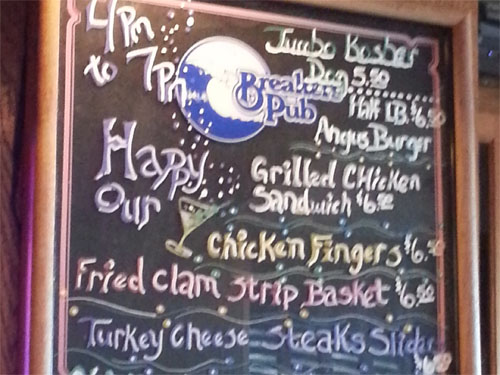 4Pm
to 7Pm
Happy
Our
Breakers
Pub
Jumbo Kosher
Dog 5.50
Half LB. $6.50
Angus Burger
Grilled CHicken
Sandwich $6.50
Chicken Fingers $6.50
Fried Clam Strip Basket $6.50
Turkey Cheese Steaks Slider
$6.50